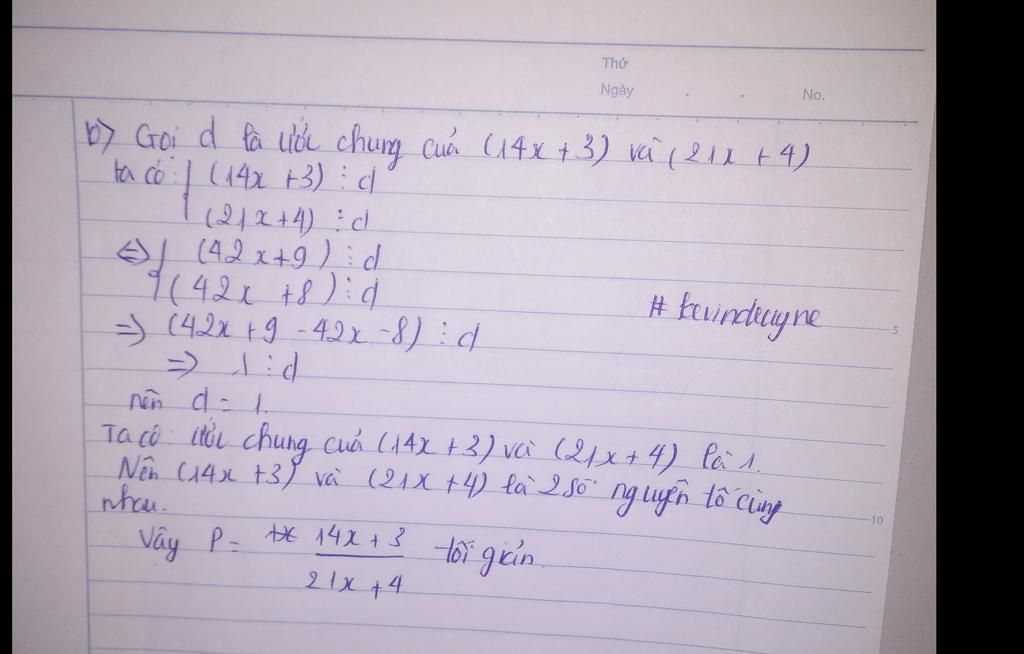 Thứ
Ngày . . No.
b) Gọi d là ước chung của (14x + 3) và (21x + 4)
ta có: { (14x + 3) ⋮ d
(21x + 4) ⋮ d
⇔ { (42x + 9) ⋮ d
(42x + 8) ⋮ d
# kevinduyne
⇒ (42x + 9 - 42x - 8) ⋮ d
5
⇒ 1 ⋮ d
nên d = 1.
Ta có: ước chung của (14x + 3) và (21x + 4) là 1.
Nên (14x + 3) và (21x + 4) là 2 số nguyên tố cùng
nhau.
10
Vậy P = 14x + 3 / 21x + 4 tối giản.